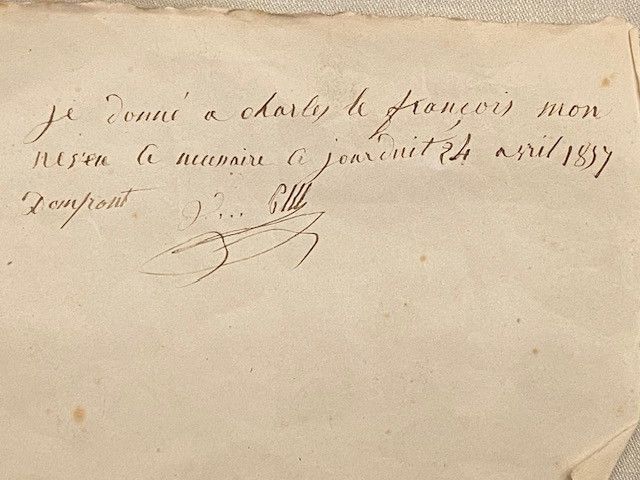 je donné a charles le françois mon
neven le mennaire le jourduit 24 avril 1857
Domfront